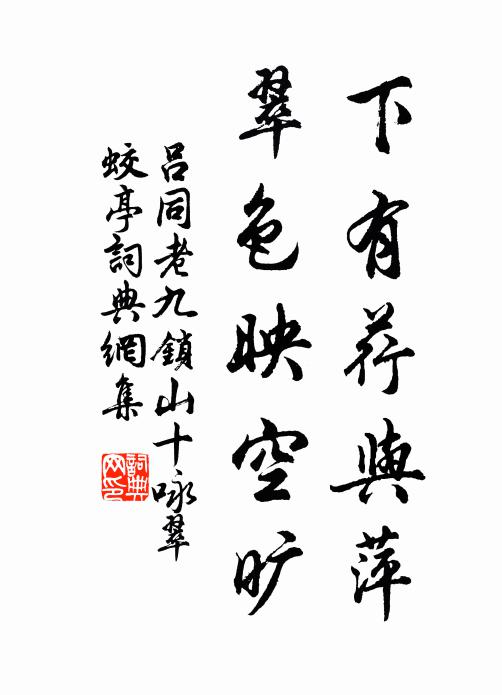 下有荇與萍
翠色映空旷
呂同老九鎖山十咏翠
蛟亭詞典網集
詞典
网印